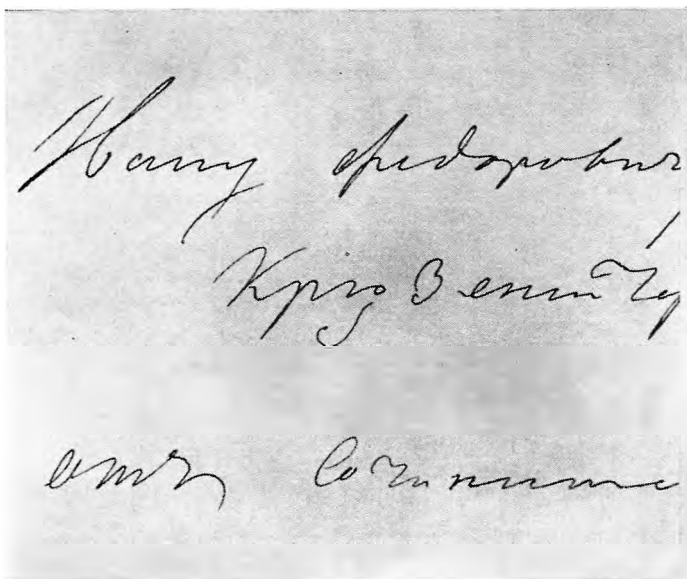 Ивану Федорович
Крузенштер
отъ Сочините